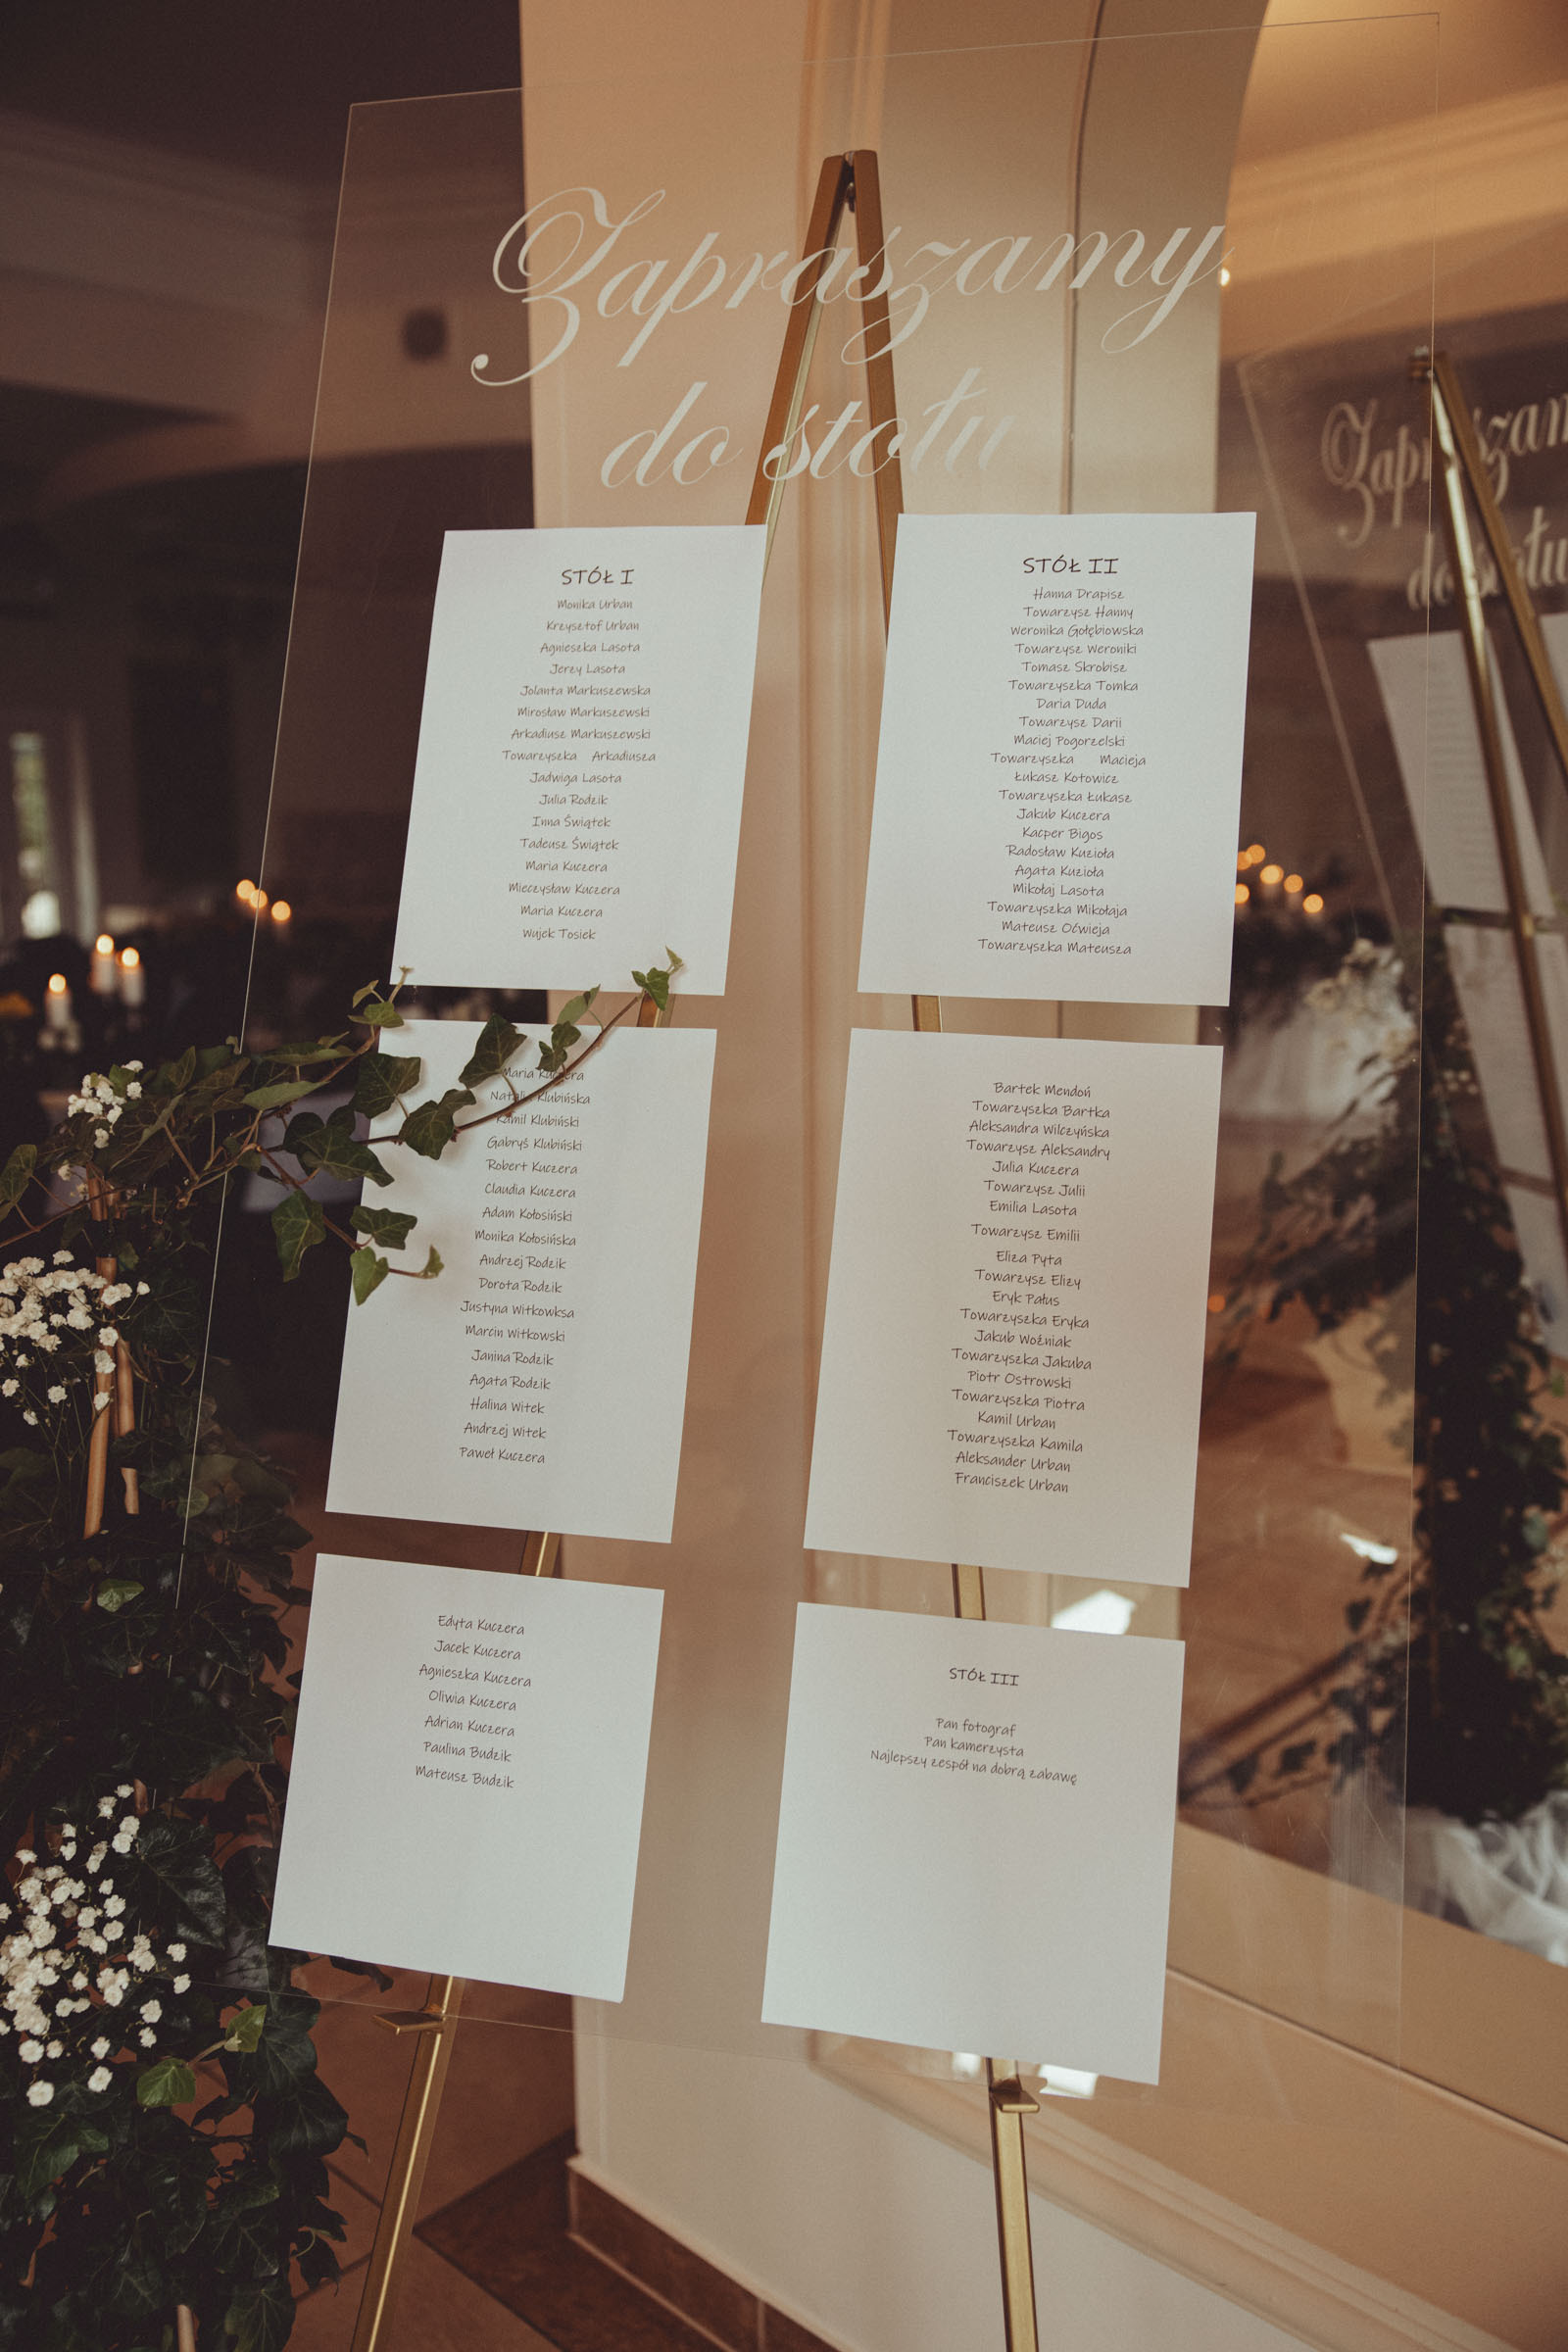 Zapraszamy
do stołu
STÓŁ I
Monika Urban
Krzysztof Urban
Agnieszka Lasota
Jerzy Lasota
Jolanta Markuszewska
Mirosław Markuszewski
Arkadiusz Markuszewski
Towarzyszka Arkadiusza
Jadwiga Lasota
Julia Rodzik
Inna Świątek
Tadeusz Świątek
Maria Kuczera
Mieczysław Kuczera
Maria Kuczera
Wujek Tosiek
Maria Kuczera
Natalia Klubińska
Kamil Klubiński
Gabryś Klubiński
Robert Kuczera
Claudia Kuczera
Adam Kołosiński
Monika Kołosińska
Andrzej Rodzik
Dorota Rodzik
Justyna Witkowksa
Marcin Witkowski
Janina Rodzik
Agata Rodzik
Halina Witek
Andrzej Witek
Paweł Kuczera
Edyta Kuczera
Jacek Kuczera
Agnieszka Kuczera
Oliwia Kuczera
Adrian Kuczera
Paulina Budzik
Mateusz Budzik
STÓŁ II
Hanna Drapisz
Towarzysz Hanny
Weronika Gołębiowska
Towarzysz Weroniki
Tomasz Skrobisz
Towarzyszka Tomka
Daria Duda
Towarzysz Darii
Maciej Pogorzelski
Towarzyszka Macieja
Łukasz Kotowicz
Towarzyszka Łukasz
Jakub Kuczera
Kacper Bigos
Radosław Kuzioła
Agata Kuzioła
Mikołaj Lasota
Towarzyszka Mikołaja
Mateusz Oćwieja
Towarzyszka Mateusza
Bartek Mendoń
Towarzyszka Bartka
Aleksandra Wilczyńska
Towarzysz Aleksandry
Julia Kuczera
Towarzysz Julii
Emilia Lasota
Towarzysz Emilii
Eliza Pyta
Towarzysz Elizy
Eryk Pałus
Towarzyszka Eryka
Jakub Woźniak
Towarzyszka Jakuba
Piotr Ostrowski
Towarzyszka Piotra
Kamil Urban
Towarzyszka Kamila
Aleksander Urban
Franciszek Urban
STÓŁ III
Pan fotograf
Pan kamerzysta
Najlepszy zespół na dobrą zabawę
Zapraszam
do stołu